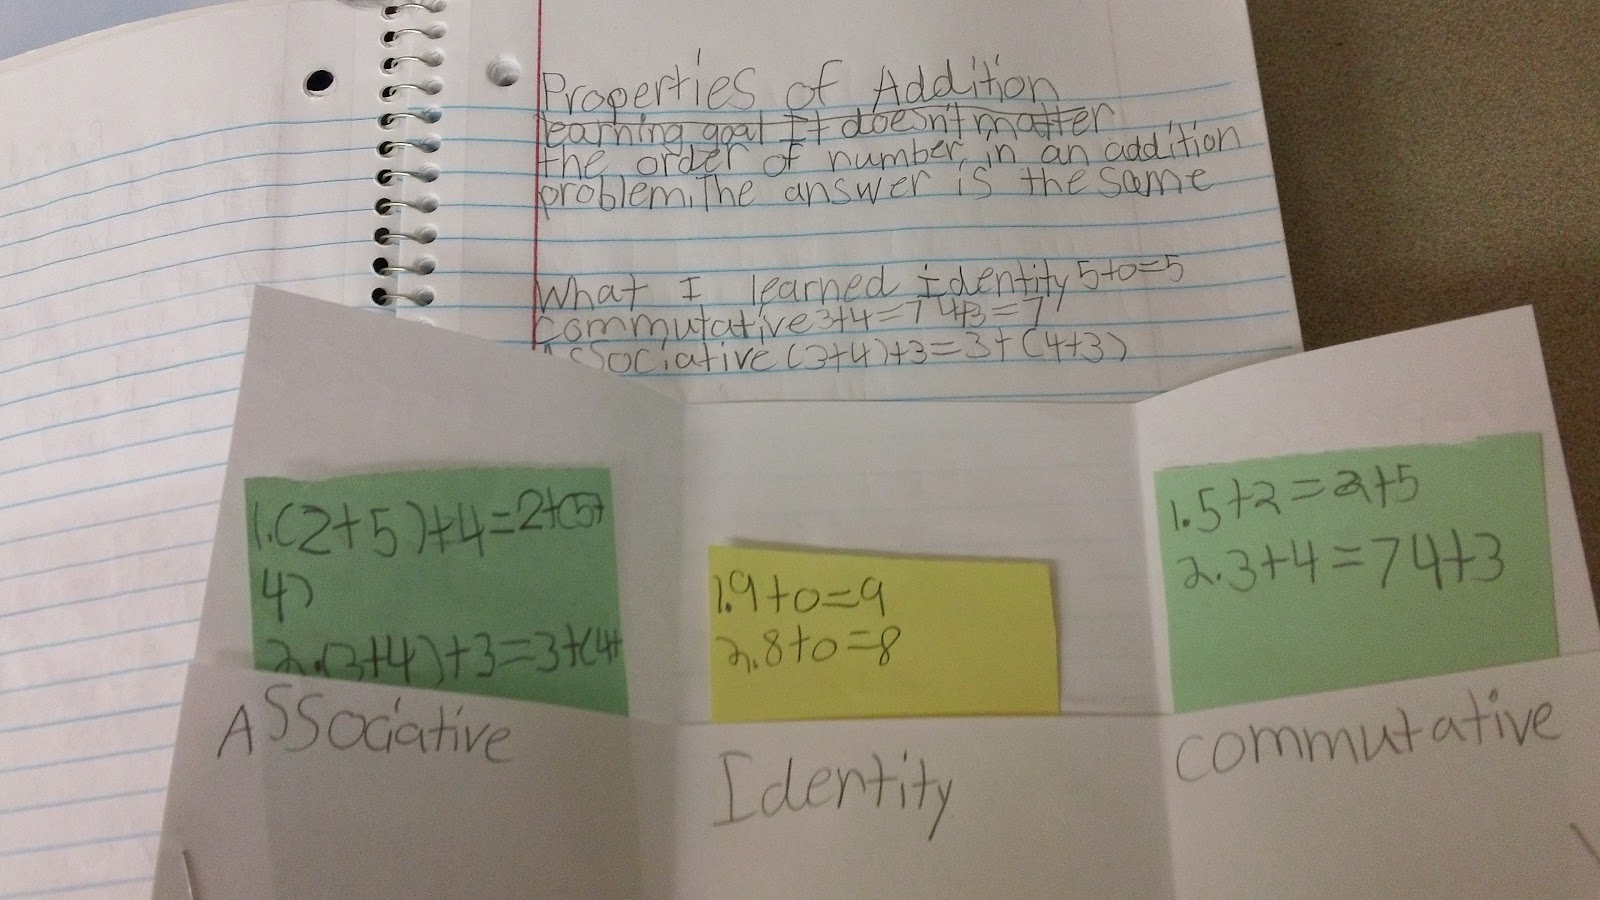 Properties of Addition
learning goal It doesn't matter
the order of number, in an addition
problem. The answer is the same
What I learned identity 5+0=5
commutative 3+4=7 4+3=7
Associative (3+4)+3=3+(4+3)
1.(2+5)+4=2+(5+
4)
2.(3+4)+3=3+(4+
Associative
1.9+0=9
2.8+0=8
Identity
1.5+2=2+5
2.3+4=7 4+3
commutative